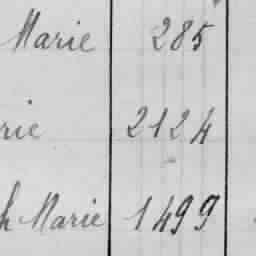 Marie 285
rie 2124
h Marie 1499